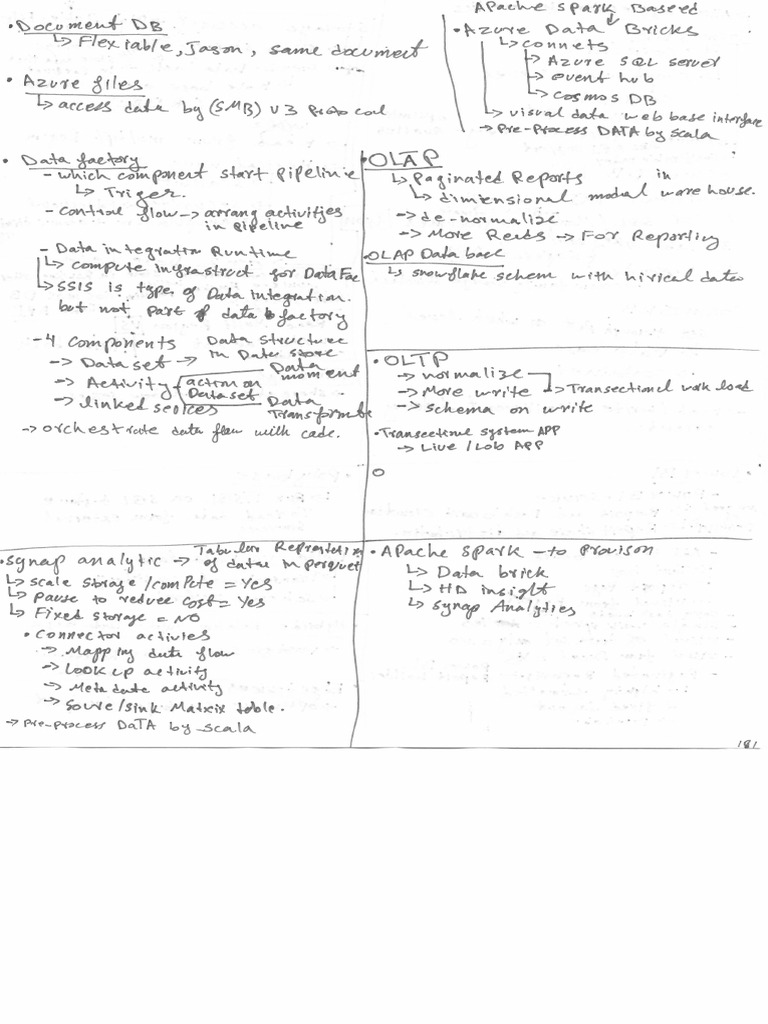 • Document DB
↳ Flexiable, Jason, same document
• Azure files
↳ access data by (SMB) V3 Protocol
Apache Spark Baseed
• Azure Data Bricks
↳ connets
↳ Azure SQL server
↳ event hub
↳ Cosmos DB
↳ visual data web base interface
→ Pre-Process DATA by scala
• Data factory
- which component start pipelinie
↳ Triger.
- control flow → arrang activities
in pipeline
- Data integration Runtime
↳ compute infrastruct for Data Fac
↳ SSIS is type of Data integration.
but not part of data factory
- 4 components
→ Data set → Data structure
in Data store
→ Activity action on
Dataset
Data moment
Data Transformte
→ linked sevices
→ orchestrate data flow with code.
• OLAP
↳ Paginated Reports in
↳ dimensional modal ware house.
→ de-normalize
→ More Reads → For Reporting
• OLAP Data back
↳ snowflake schem with hirical data
• OLTP
→ normalize
→ More write → Transectional work load
→ schema on write
• Transectional system APP
→ Live / Lob APP
• Synap analytic → Tabular Represtation
of datas in perquet
↳ scale storage / compete = Yes
↳ pause to reduce cost = Yes
↳ Fixed storage = NO
• connector activies
→ Mapping data flow
→ Look up activity
→ Meta data activity
→ Sourve/sink Matrix table.
→ Pre-process DaTA by scala
• Apache Spark - to Provison
↳ Data brick
↳ HD insight
↳ Synap Analytics
181